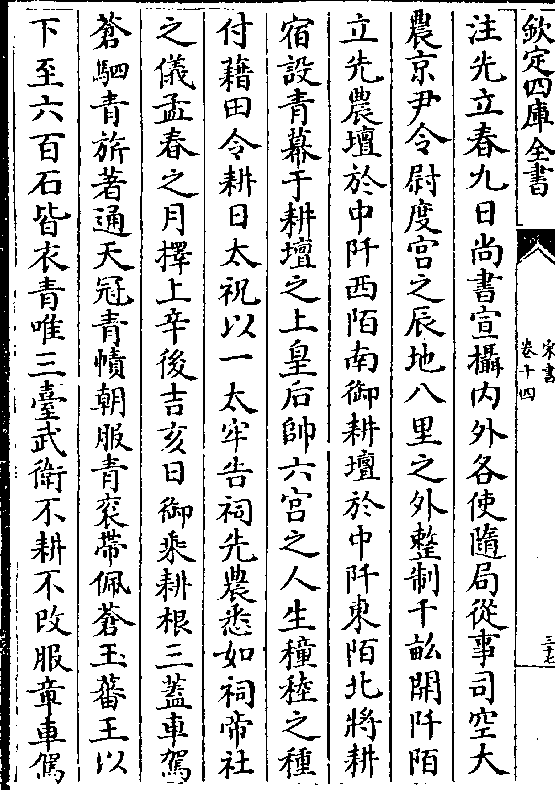 欽定四庫全書
宋書
卷十四
注先立春九日尚書宣攝内外各使隨局從事司空大
農京尹令尉度宫之辰地八里之外整制千畝開阡陌
立先農壇於中阡西陌南御耕壇於中阡東陌北將耕
宿設青幕于耕壇之上皇后帥六宫之人生穜稑之種
付藉田令耕日太祝以一太牢告祠先農悉如祠帝社
之儀孟春之月擇上辛後吉亥日御乘耕根三蓋車駕
蒼駟青旂著通天冠青幘朝服青衮帶佩蒼玉蕃王以
下至六百石皆衣青唯三臺武衛不耕不改服章車駕